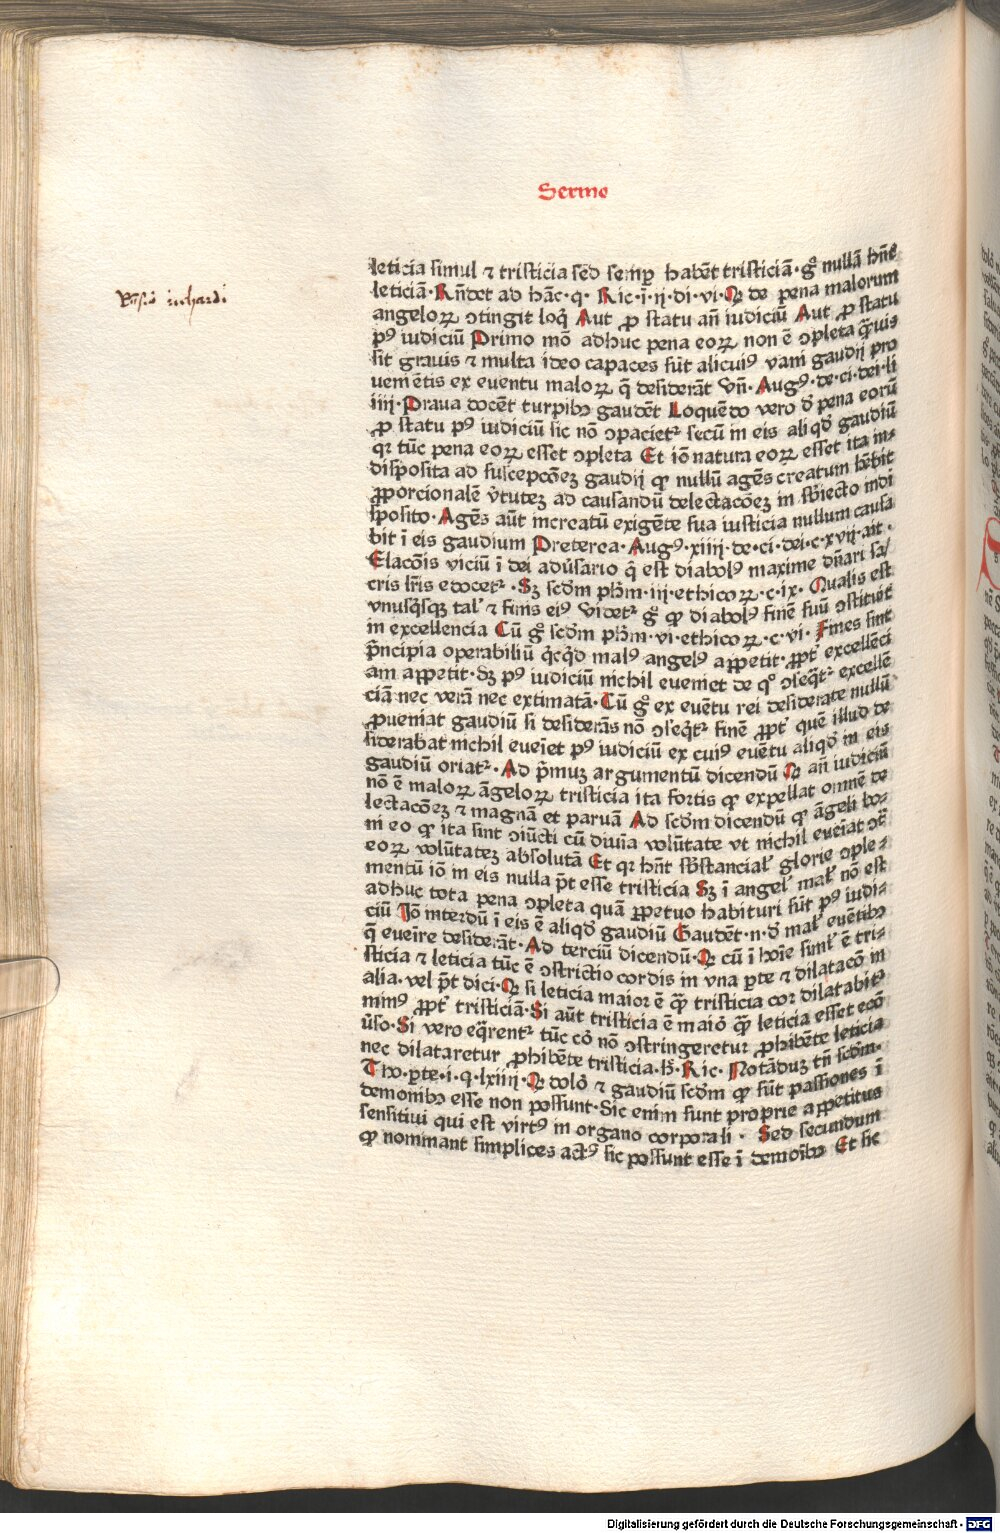 Sermo
leticia simul ⁊ tristicia sed semꝑ habēt tristiciā · gͦ nullā hn̄t
leticiā · Rn̄det ad hāc · q · Ric · i · ij · di · vi · Qꝛ de pena malorum
angeloꝝ ↄtingit loq̇ Aut ꝓ statu an̄ iudiciū Aut ꝓ statu
pꝰ iudiciū Primo mō adhuc pena eoꝝ non ē ↄpleta q̄uis
sit grauis ⁊ multa ideo capaces sūt alicuiꝰ vani gaudij pro
ueniētis ex euentu maloꝝ q̄ desiderāt vn̄ · Augꝰ · de · ci · dei · li
iiij · Praua docēt turpibꝫ gaudēt Loquēdo vero d̄ pena eorū
ꝓ statu pꝰ iudiciū sic nō ↄpacietr secū in eis aliqd̄ gaudiū
qꝛ tūc pena eoꝝ esset ↄpleta Et iō natura eoꝝ esset ita in⸗
disposita ad suscepcōeꝫ gaudij ꝙ nullū agēs creatum hēbit
ꝓporcionalē v̄tuteꝫ ad causandū delectacōeꝫ in sb̄iecto indi
sposito · Agēs aūt increatū exigēte sua iusticia nullum causa
bit ī eis gaudium Preterea · Augꝰ · xiiij · de · ci · dei · c · xvij · ait ·
Elacōis viciū ī dei adūsario q̄ est diabolꝰ maxime dn̄ari sa/
cris lr̄is edocetr · Sꝫ scd̄m ph̄m · iij · ethicoꝝ · c · ix · Qualis est
vnusq̇sqꝫ tal' ⁊ finis eiꝰ videtr gͦ ꝙ diabolꝰ finē suū ↄstituit
in excellencia Cū gͦ scd̄m ph̄m · vi · ethicoꝝ · c · vi · Fines sint
p̄ncipia operabiliū q̇cq̇d malꝰ angelꝰ appetit · ꝓpt' excellēci
am appetit · Sꝫ pꝰ iudiciū nichil eueniet de qͦ ↄseq̄tr excellē
ciā nec verā nec extimatā · Cū gͦ ex euētu rei desiderate nullū
ꝓueniat gaudiū si desiderās nō ↄseq̄tr finē ꝓpt' quē illud de
siderabat nichil eueīet pꝰ iudiciū ex cuiꝰ euētu aliqd̄ in eis
gaudiū oriatr · Ad p̄muꝫ argumentū dicendū Qꝛ an̄ iudiciū
nō ē maloꝝ āgeloꝝ tristicia ita fortis ꝙ expellat omnē de
lectacōeꝫ ⁊ magnā et paruā Ad scd̄m dicendū ꝙ āgeli bo⸗
ni eo ꝙ ita sint ↄiūcti cū diuīa volūtate vt nichil eueīat ↄt̄
eoꝝ volūtateꝫ absolutā Et qꝛ hn̄t sb̄stancial' glorie ↄple⸗
mentū iō in eis nulla p̄t esse tristicia Sꝫ ī angel' mal' nō est
adhuc tota pena ↄpleta quā ꝑpetuo habituri sūt pꝰ iudi⸗
ciū Iō interdū ī eis ē aliqd̄ gaudiū Gaudēt · n · d̄ mal' euētibꝫ
q̄ eueīre desiderāt · Ad terciū dicendū · Qꝛ cū ī hoīe siml' ē tri⸗
sticia ⁊ leticia tūc ē ↄstrictio cordis in vna ꝑte ⁊ dilatacō in
alia · vel p̄t dici · Qꝛ si leticia maior ē q̄ꝫ tristicia cor dilatabitr
minꝰ ꝓpt' tristiciā · Si aūt tristicia ē maior q̄ꝫ leticia esset ecō
ūso · Si vero eq̄rentr tūc cor nō ↄstringeretur ꝓhibēte leticia
nec dilataretur ꝓhibēte tristicia · h̄ · Ric · Notāduꝫ tn̄ scd̄m ·
Tho · ꝑte · i · q · lxiiij · Qꝛ dolor ⁊ gaudiū scd̄m ꝙ sūt passiones ī
demonibꝫ esse non possunt · Sic enim sunt proprie appetitus
sensitiui qui est virtꝰ in organo corporali · Sed secundum
ꝙ nominant simplices actꝰ sic possunt esse ī demoībꝫ Et sic